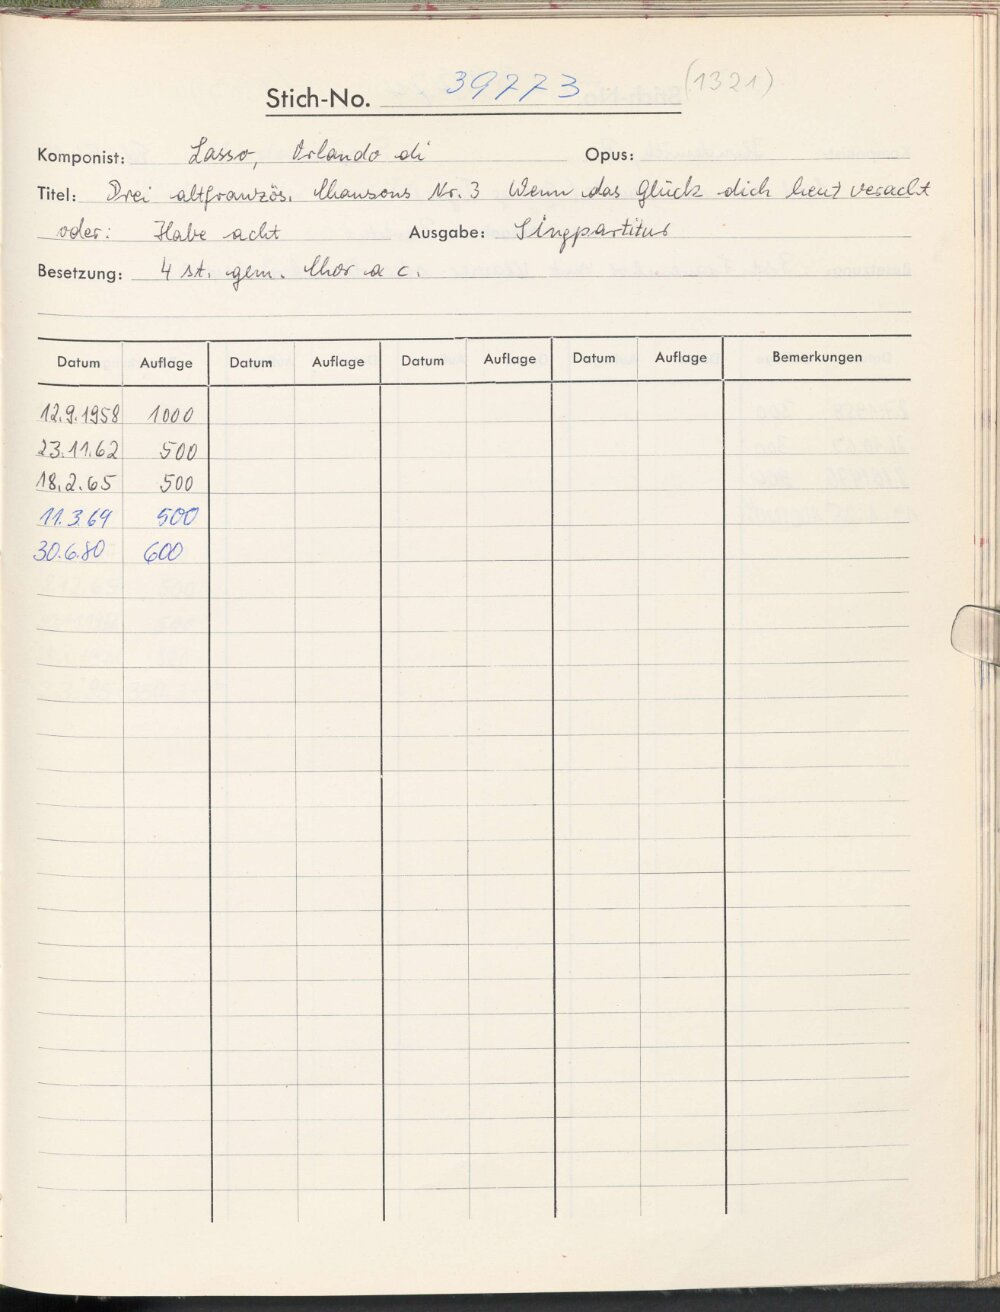 Stich-No. 39773 (1321)
Komponist: Lasso, Orlando di Opus:
Titel: Drei altfranzös. Chansons Nr. 3 Wenn das Glück dich heut veracht
oder: Habe acht Ausgabe: Singpartitur
Besetzung: 4 st. gem. Chor a c.
Datum Auflage Datum Auflage Datum Auflage Datum Auflage Bemerkungen
12.9.1958 1000
23.11.62 500
18.2.65 500
11.3.69 500
30.6.80 600